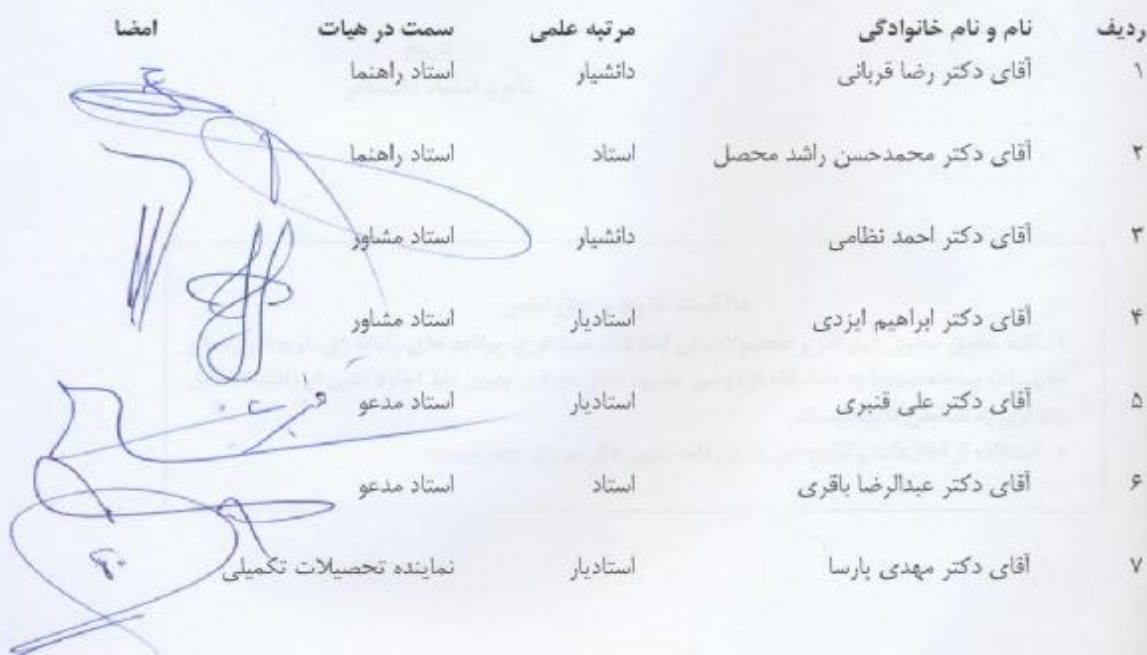 ردیف نام و نام خانوادگی مرتبه علمی سمت در هیات امضا
۱ آقای دکتر رضا قربانی دانشیار استاد راهنما
۲ آقای دکتر محمدحسن راشد محصل استاد استاد راهنما
۳ آقای دکتر احمد نظامی دانشیار استاد مشاور
۴ آقای دکتر ابراهیم ایزدی استادیار استاد مشاور
۵ آقای دکتر علی قنبری استادیار استاد مدعو
۶ آقای دکتر عبدالرضا باقری استاد استاد مدعو
۷ آقای دکتر مهدی پارسا استادیار نماینده تحصیلات تکمیلی